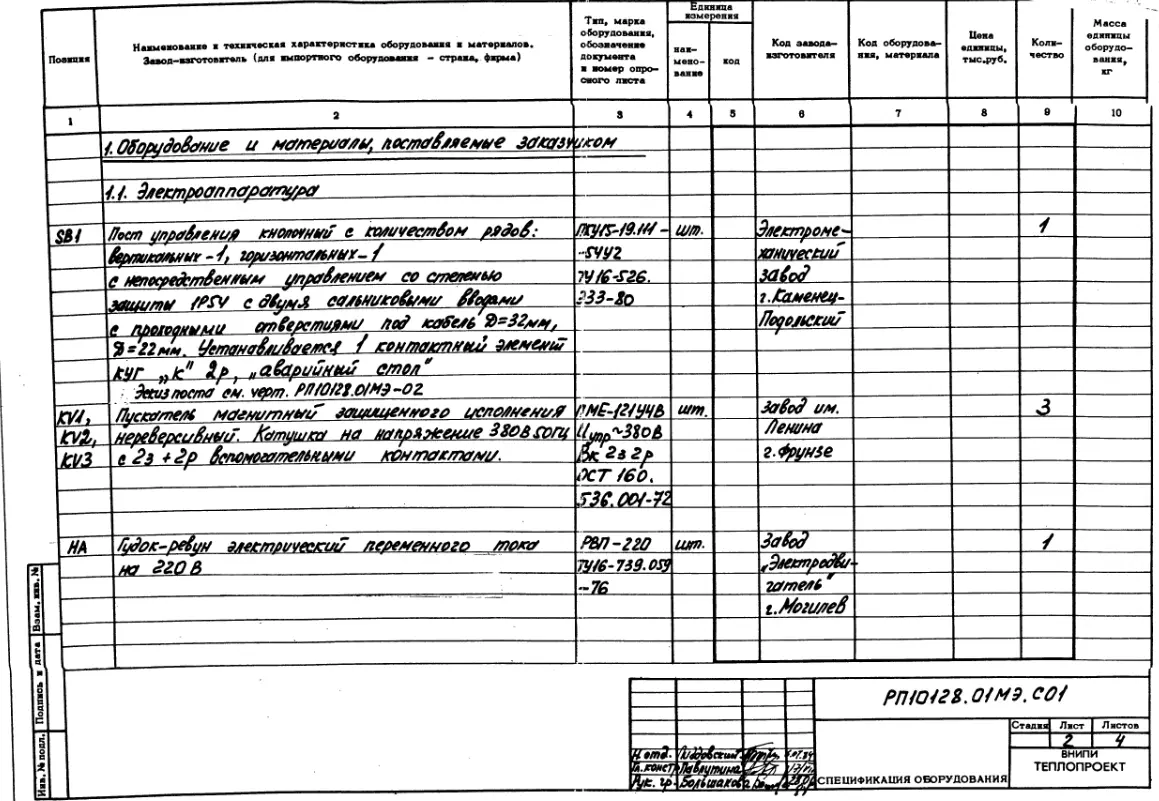 Позиция
Наименование и техническая характеристика оборудования и материалов.
Завод-изготовитель (для импортного оборудования - страна, фирма)
Тип, марка
оборудования,
обозначение
документа
и номер опро-
сного листа
Единица
измерения
наи-
мено-
вание
код
Код завода-
изготовителя
Код оборудова-
ния, материала
Цена
единицы,
тыс.руб.
Коли-
чество
Масса
единицы
оборудо-
вания,
кг
1 2 3 4 5 6 7 8 9 10
1. Оборудование и материалы, поставляемые заказчиком
1.1. Электроаппаратура
SB1 Пост управления кнопочный с количеством рядов: ПКУ15-19.111- шт. Электроме- 1
вертикальных -1, горизонтальных-1 -54У2 ханический
с непосредственным управлением со степенью ТУ16-526. завод
защиты IP54 с двумя сальниковыми вводами 333-80 г.Каменец-
с проходными отверстиями под кабель D=32мм, Подольский
D=22мм. Устанавливается 1 контактный элемент
КУГ „К" 2р, „аварийный стоп"
Эскиз поста см. черт. РП10128.01МЭ-02
KV1, Пускатель магнитный защищенного исполнения ПМЕ-121У4В шт. Завод им. 3
KV2, нереверсивный. Катушка на напряжение 380В 50Гц Uупр~380В Ленина
KV3 с 2з+2р вспомогательными контактами. Вк 2з2р г.Фрунзе
ОСТ 160.
536.001-72
HA Гудок-ревун электрический переменного тока РВП-220 шт. Завод 1
на 220 В ТУ16-739.059 „Электродви-
-76 гатель"
г.Могилев
Взам. инв. №
Подпись и дата
Инв. № подл.
РП10128.01МЭ.С01
Стадия Лист Листов
2 4
Н.отд.
Гл.конст. Павлутина
Рук. гр. Большакова
СПЕЦИФИКАЦИЯ ОБОРУДОВАНИЯ
ВНИПИ
ТЕПЛОПРОЕКТ